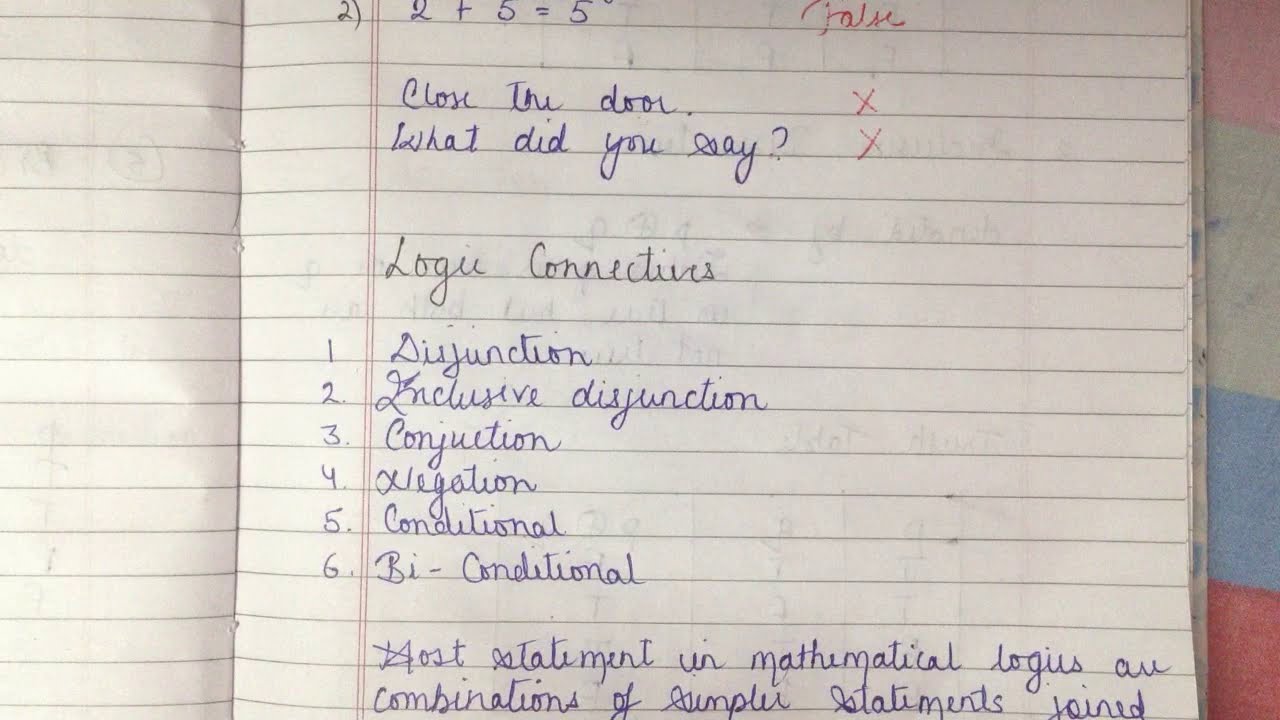 2) 2 + 5 = 5 False
Close the door. X
What did you say? X
Logic Connectives
1 Disjunction
2. Inclusive disjunction
3. Conjuction
4. Negation
5. Conditional
6. Bi - Conditional
Most statement in mathematical logics are
combinations of simpler statements joined